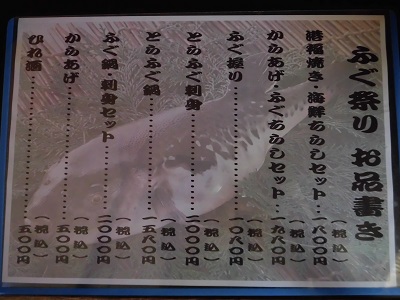 ふぐ祭り お品書き
港福焼き・海鮮ちらしセット‥(税込)一八〇〇円
からあげ・ふぐちらしセット‥(税込)一九八〇円
ふぐ握り…………(税込)一〇八〇円
とらふぐ刺身…………(税込)二〇〇〇円
とらふぐ鍋…………(税込)一五八〇円
ふぐ鍋・刺身セット…………(税込)二〇〇〇円
からあげ…………(税込)五〇〇円
ひれ酒…………(税込)五〇〇円